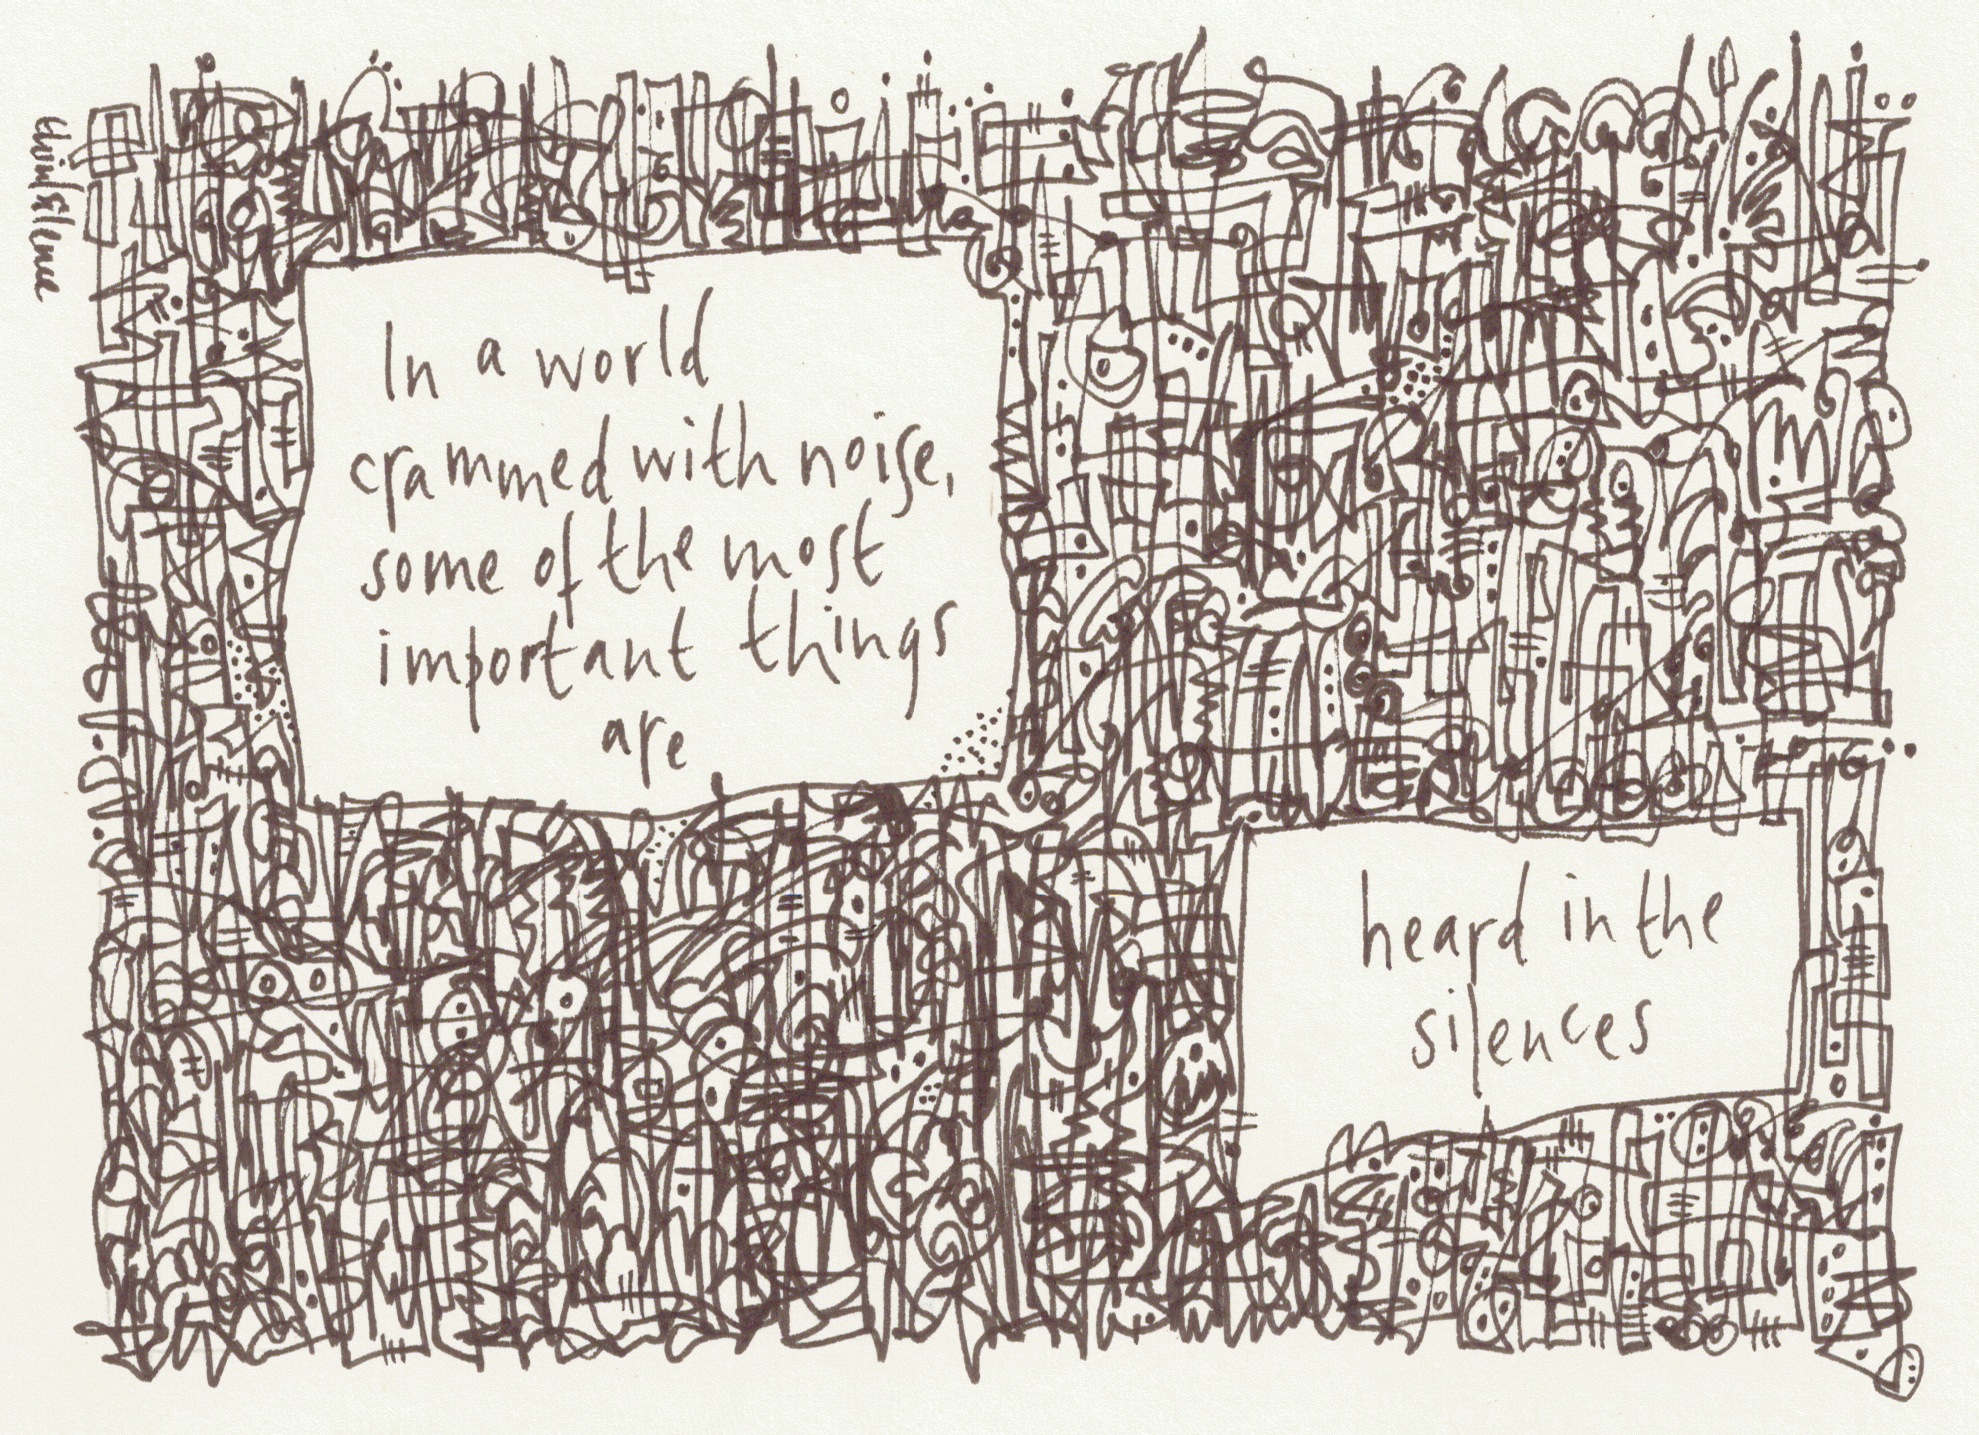 In a world
crammed with noise,
some of the most
important things
are
heard in the
silences